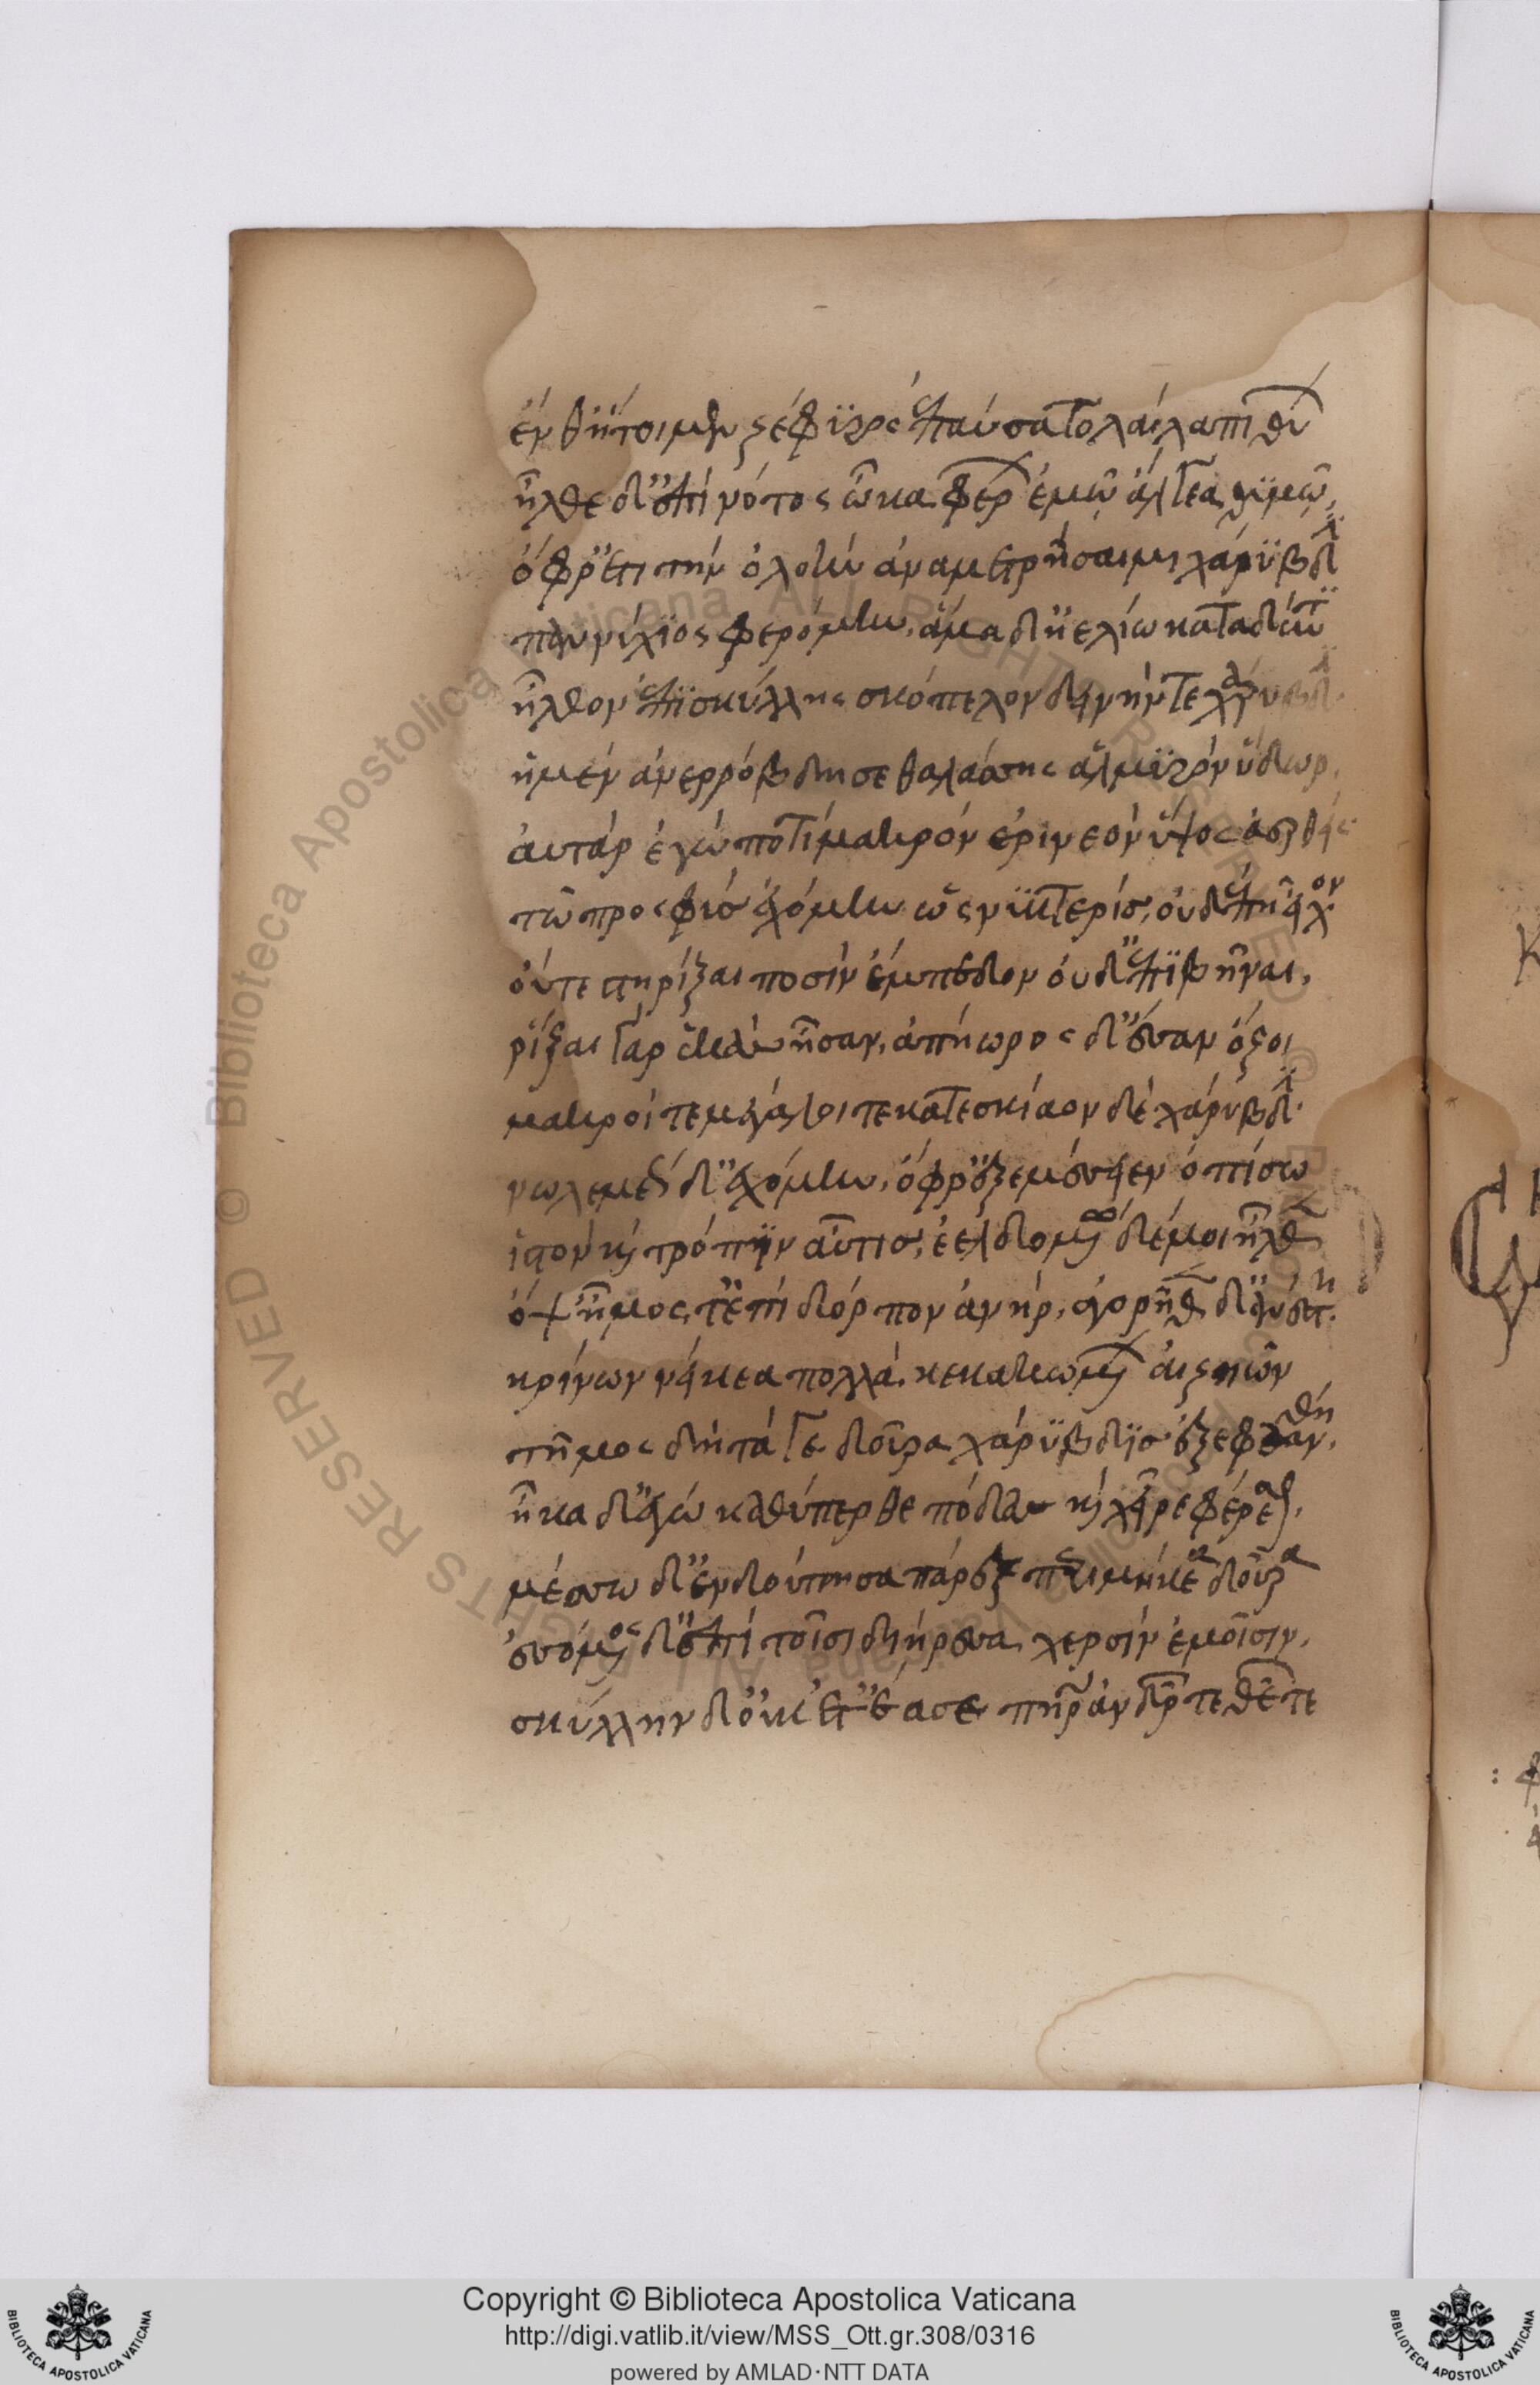 ἔνθ' ἤτοι μὲν ζέφυρος ἐπαύσατο λαίλαπι θύων
ἦλθε δ' ἐπὶ νότος ὦκα φέρων ἐμῶ ἄλγεα θυμῶ,
ὄφρ' ἔτι τὴν ὀλοὴν ἀναμετρήσαιμι χάρυβδιν
παννύχιος φερόμην, ἅμα δ' ἠελίω κατιόντι
ἦλθον ἐπὶ σκύλλης σκόπελον δεινήν τε χάρυβδιν.
ἡ μὲν ἀνερρόβδησε θαλάσσης ἁλμυρὸν ὕδωρ,
αὐτὰρ ἐγὼ ποτὶ μακρὸν ἐρινεὸν ὑψόσ' ἀερθείς
τῶ προσφὺς ἐχόμην ὡς νυκτερίς, οὐδέ πη εἶχον
οὔτε στηρίξαι ποσὶν ἔμπεδον οὐδ' ἐπιβῆναι,
ῥίζαι γὰρ ἑκὰς ἦσαν, ἀπήωροι δ' ἔσαν ὄζοι
μακροί τε μεγάλοι τε κατεσκίαον δὲ χάρυβδιν.
νωλεμέως δ' ἐχόμην, ὄφρ' ἐξεμέσειεν ὀπίσω
ἱστὸν καὶ τρόπιν αὖτις, ἐελδομένω δέ μοι ἦλθον
ὄψ' ἦμος δ' ἐπὶ δόρπον ἀνὴρ ἀγορῆθεν ἀνέστη.
κρίνων νείκεα πολλὰ δικαζομένων αἰζηῶν
τῆμος δὴ τά γε δοῦρα χάρυβδις ἐξεφαάνθη.
ἧκα δ' ἐγὼ καθύπερθε πόδας καὶ χεῖρε φέρεσθαι.
μέσσω δ' ἐνδούπησα παρὲξ περιμήκεα δοῦρα
ἑζόμενος δ' ἐπὶ τοῖσι διήρεσα χερσὶν ἐμοῖσιν,
σκύλλην δ' οὐκέτ' ἔασε πατὴρ ἀνδρῶν τε θεῶν τε
Copyright © Biblioteca Apostolica Vaticana
http://digi.vatlib.it/view/MSS_Ott.gr.308/0316
powered by AMLAD·NTT DATA